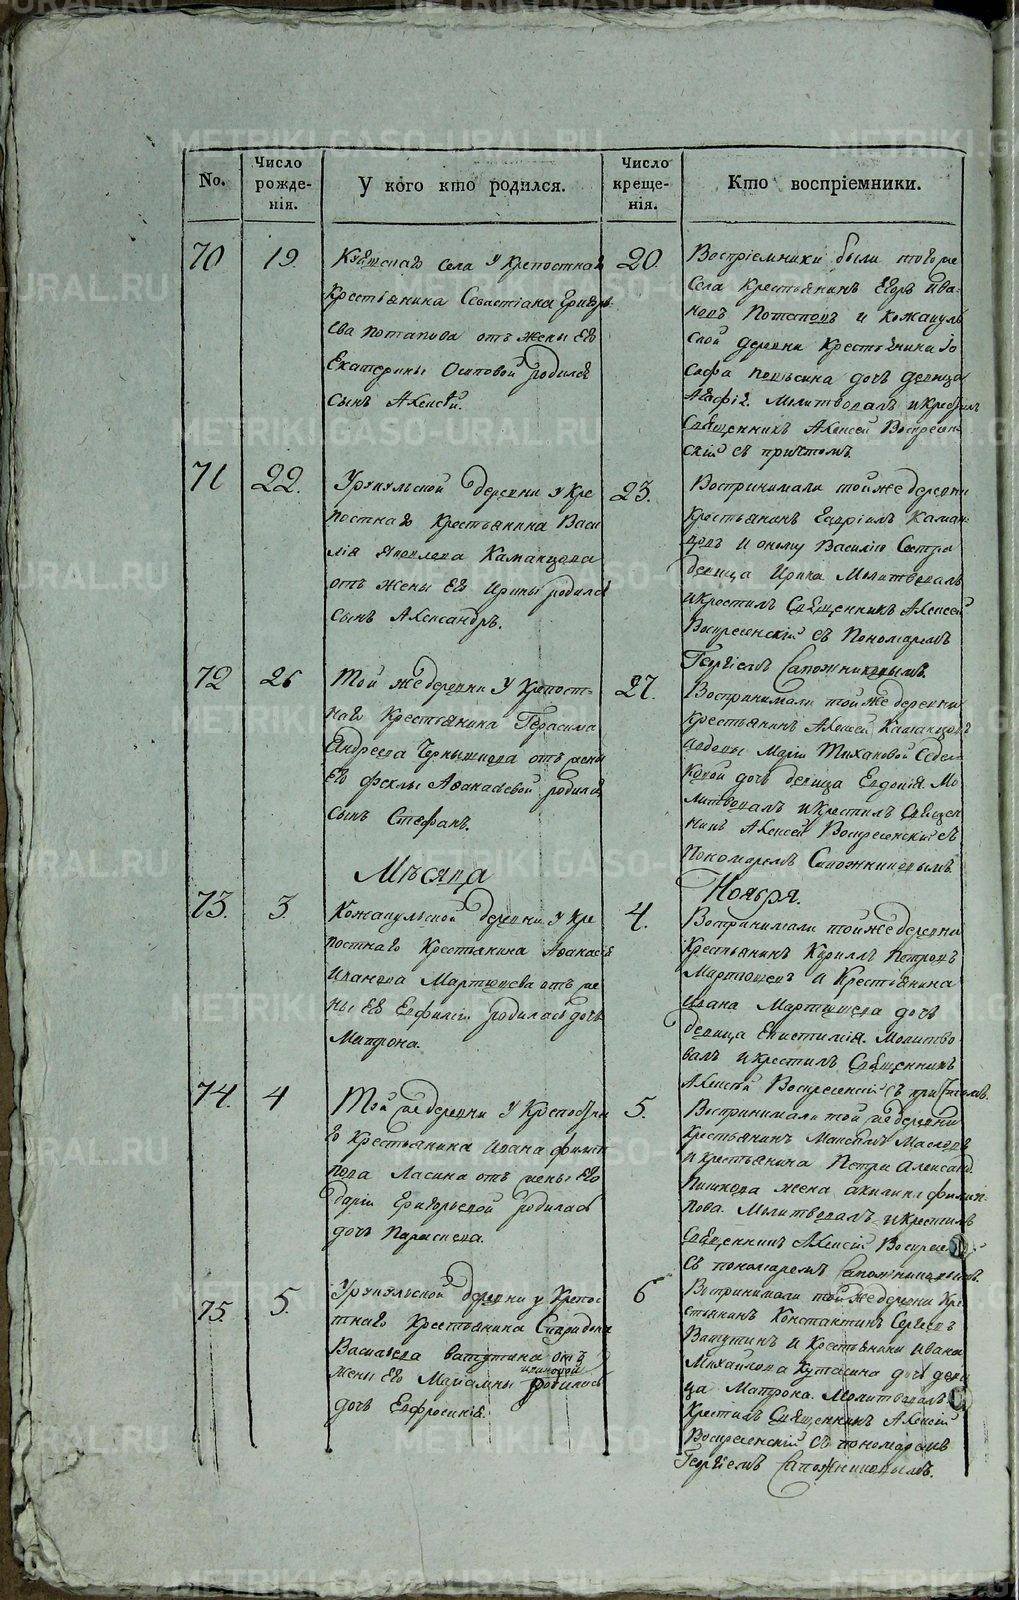 METRIKI.GASO-URAL.RU
No.
Число рожде-нія.
У кого кто родился.
Число креще-нія.
Кто воспріемники.
70
19.
села у крепостнаго
Крестьянина Севастіана Григорь-
ева Потапова отъ жены его
Екатерины Осиповой родился
сынъ Алексѣй.
20.
Воспріемники были тогоже
села Крестьянинъ Егоръ Ива-
новъ Потаповъ и
ской деревни Крестьянина Іо
сифа дочь девица
Агафія. Молитвовалъ и крестилъ
Священникъ Алексей Воскресен-
скій съ причтомъ.
71
22.
деревни у кре
постнаго Крестьянина Васи
лія Яковлева Каманцова
отъ жены его Ирины родился
сынъ Александръ.
23.
Воспринимали тойже деревни
крестьянинъ Гавріилъ Каман-
цовъ и оному Василію сестра
девица Ирина Молитвовалъ
и крестилъ Священникъ Алексей
Воскресенскій съ Пономаремъ
Георгіемъ Сапожниковымъ.
72
26
Той же деревни у Крепост-
наго Крестьянина Герасима
Андреева Чернышева отъ жены
его Феклы Афанасьевой родился
сынъ Стефанъ.
27.
Воспринимали тойже деревни
крестьянинъ Алексей Каманцовъ
и вдовы Маріи Тихановой
дочь девица Евдокія Мо
литвовалъ и крестилъ Священ
никъ Алексей Воскресенскій съ
Пономаремъ Сапожниковымъ.
Мѣсяца
Ноября.
73.
3.
деревни у кре
постнаго Крестьянина Афанасія
Иванова Мартюшева отъ же
ны его Евфиміи родилась дочь
Матрона.
4.
Воспринимали тойже деревни
Крестьянинъ Кириллъ Петровъ
Мартюшевъ и Крестьянина
Ивана Мартюшева дочь
девица Епистимія. Молитво
валъ и крестилъ Священникъ
Алексей Воскресенскій съ причтомъ.
74.
4
Той же деревни у Крепостна
го Крестьянина Ивана Филип
пова Ласина отъ жены его
Даріи Григорьевой родилась
дочь Параскева.
5.
Воспринимали той же деревни
Крестьянинъ Максимъ Масловъ
и крестьянина Петра Александ.
жена Акилина Филип-
пова. Молитвовалъ и крестилъ
Священникъ Алексій
съ пономаремъ Сапожниковымъ.
75.
5.
деревни у Крепос-
тнаго Крестьянина Спиридона
Васильева Ватутина отъ
жены его Маріамны Ивановой родилась
дочь Евфросинія.
6
Воспринимали тойже деревни Кре-
стьянинъ Константинъ Сергеевъ
Ватутинъ и Крестьянина Ивана
Михайлова дочь деви
ца Матрона. Молитвовалъ
Крестилъ Священникъ Алексій
Воскресенскій съ пономаремъ
Георгіемъ Сапожниковымъ.